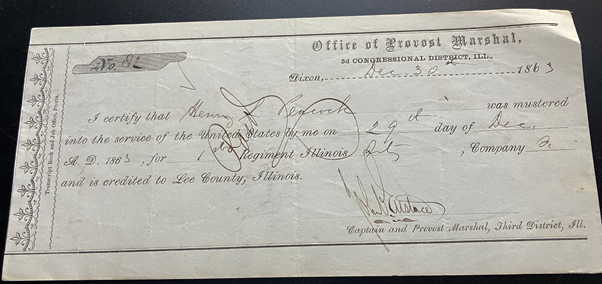 No. 82
Office of Provost Marshal,
3d CONGRESSIONAL DISTRICT, ILL.,
Dixon, Dec. 30 1863
I certify that Henry Peacock was mustered
into the service of the United States by me on 29th day of Dec.
A. D. 1863, for Regiment Illinois , Company
and is credited to Lee County, Illinois.
Captain and Provost Marshal, Third District, Ill.
Transcript Book and Job Office, Peoria.